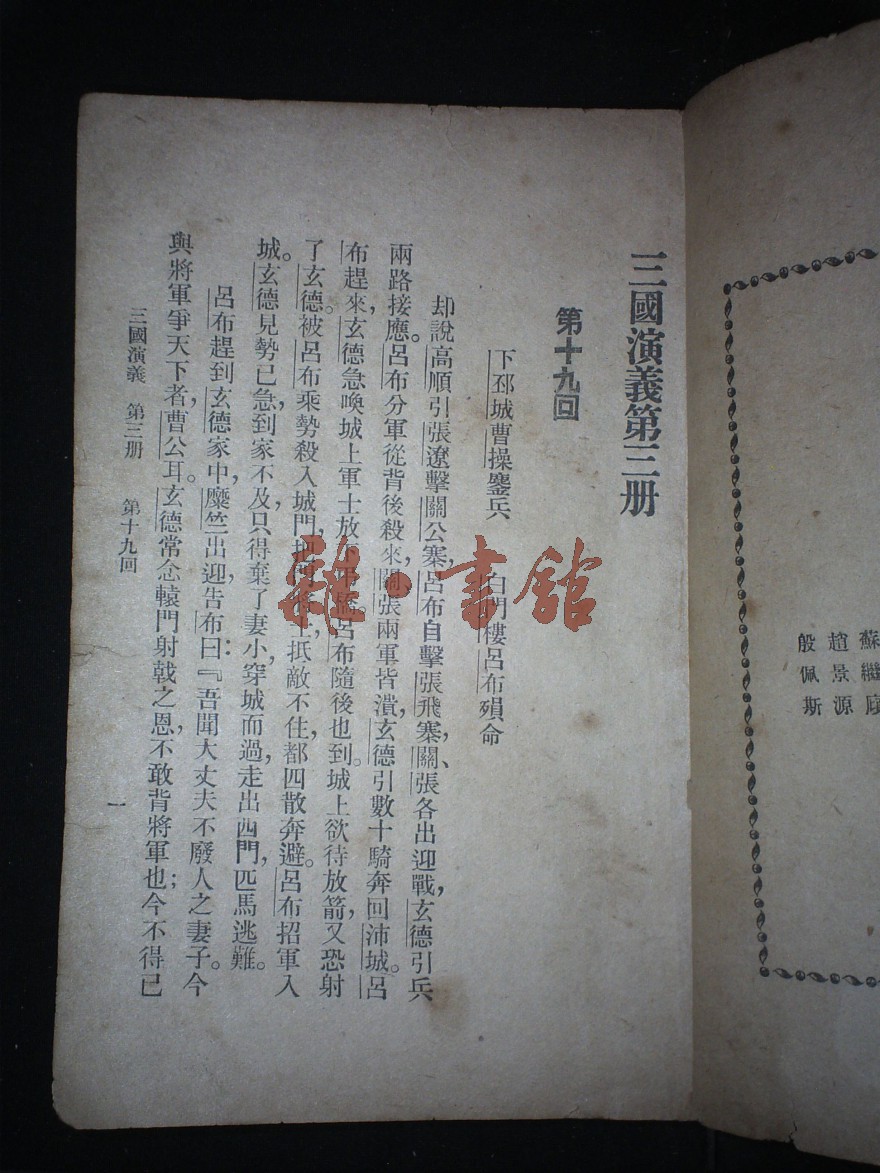 蘇繼
趙景源
殷佩斯
三國演義第三册
第十九回
下邳城曹操鏖兵　白門樓呂布殞命
却說高順引張遼擊關公寨，呂布自擊張飛寨，關、張各出迎戰，玄德引兵
兩路接應。呂布分軍從背後殺來，關張兩軍皆潰，玄德引數十騎奔回沛城。呂
布趕來，玄德急喚城上軍士放下吊橋。呂布隨後也到。城上欲待放箭，又恐射
了玄德。被呂布乘勢殺入城門，把門將士，抵敵不住，都四散奔避。呂布招軍入
城。玄德見勢已急，到家不及，只得棄了妻小，穿城而過，走出西門，匹馬逃難。
呂布趕到玄德家中，糜竺出迎，告布曰：『吾聞大丈夫不廢人之妻子。今
與將軍爭天下者，曹公耳。玄德常念轅門射戟之恩，不敢背將軍也；今不得已
三國演義　第三册　第十九回　一
雜·書館